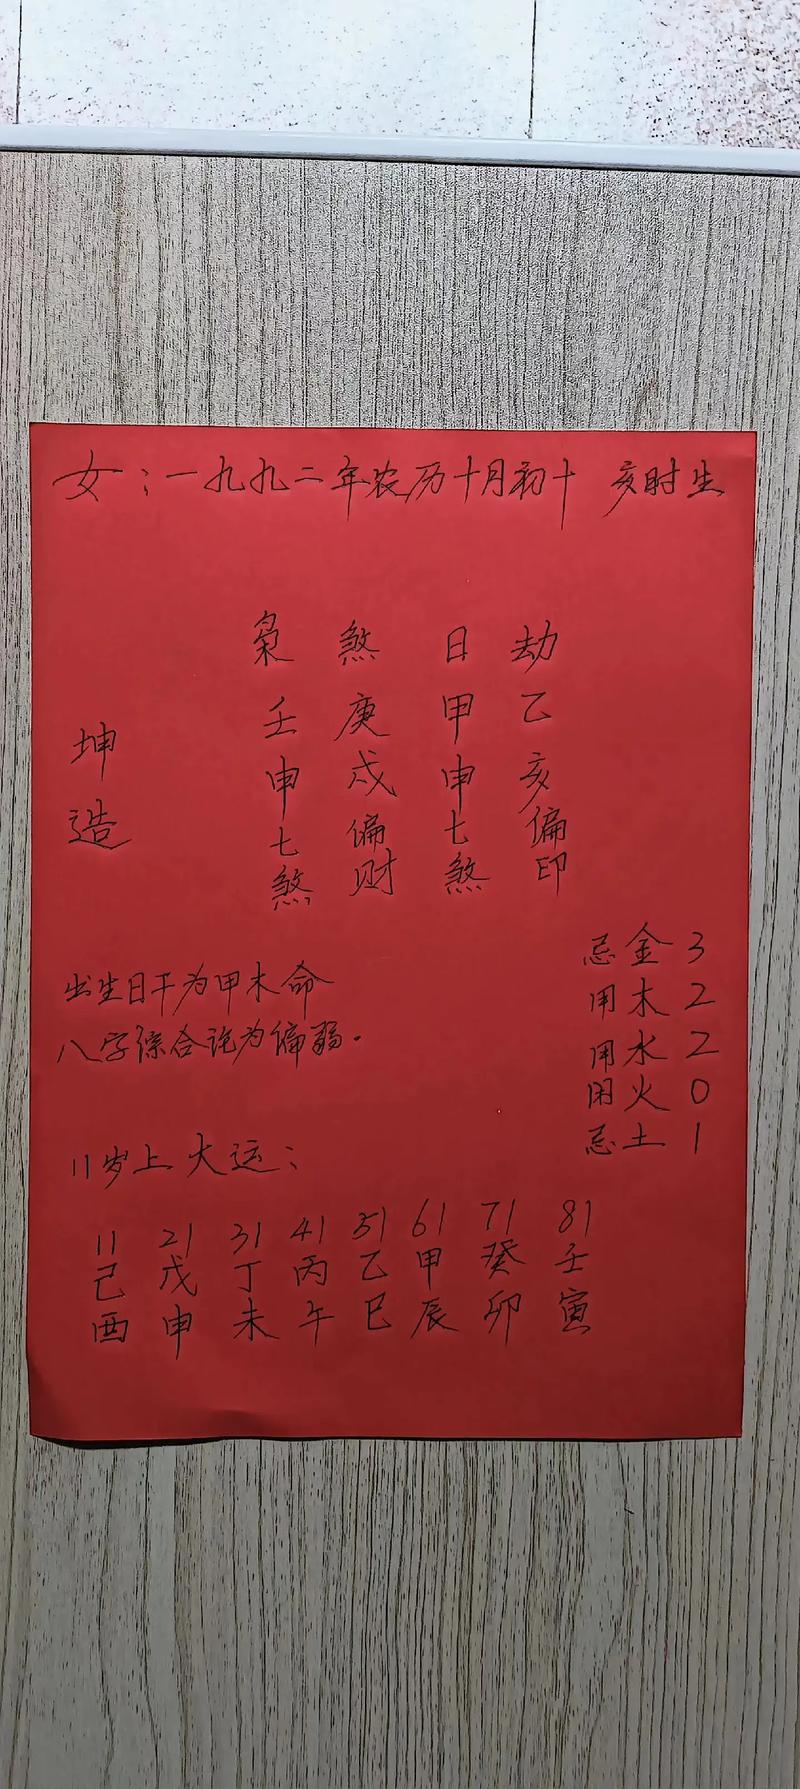 女：一九九二年农历十月初十 亥时生
枭 煞 日 劫
坤造
壬 庚 甲 乙
申 戌 申 亥
七煞 偏财 七煞 偏印
忌金3
用木2
用水2
用火0
忌土1
出生日干为甲木命
八字综合论为偏弱.
11岁上大运：
11 21 31 41 51 61 71 81
己 戊 丁 丙 乙 甲 癸 壬
酉 申 未 午 巳 辰 卯 寅